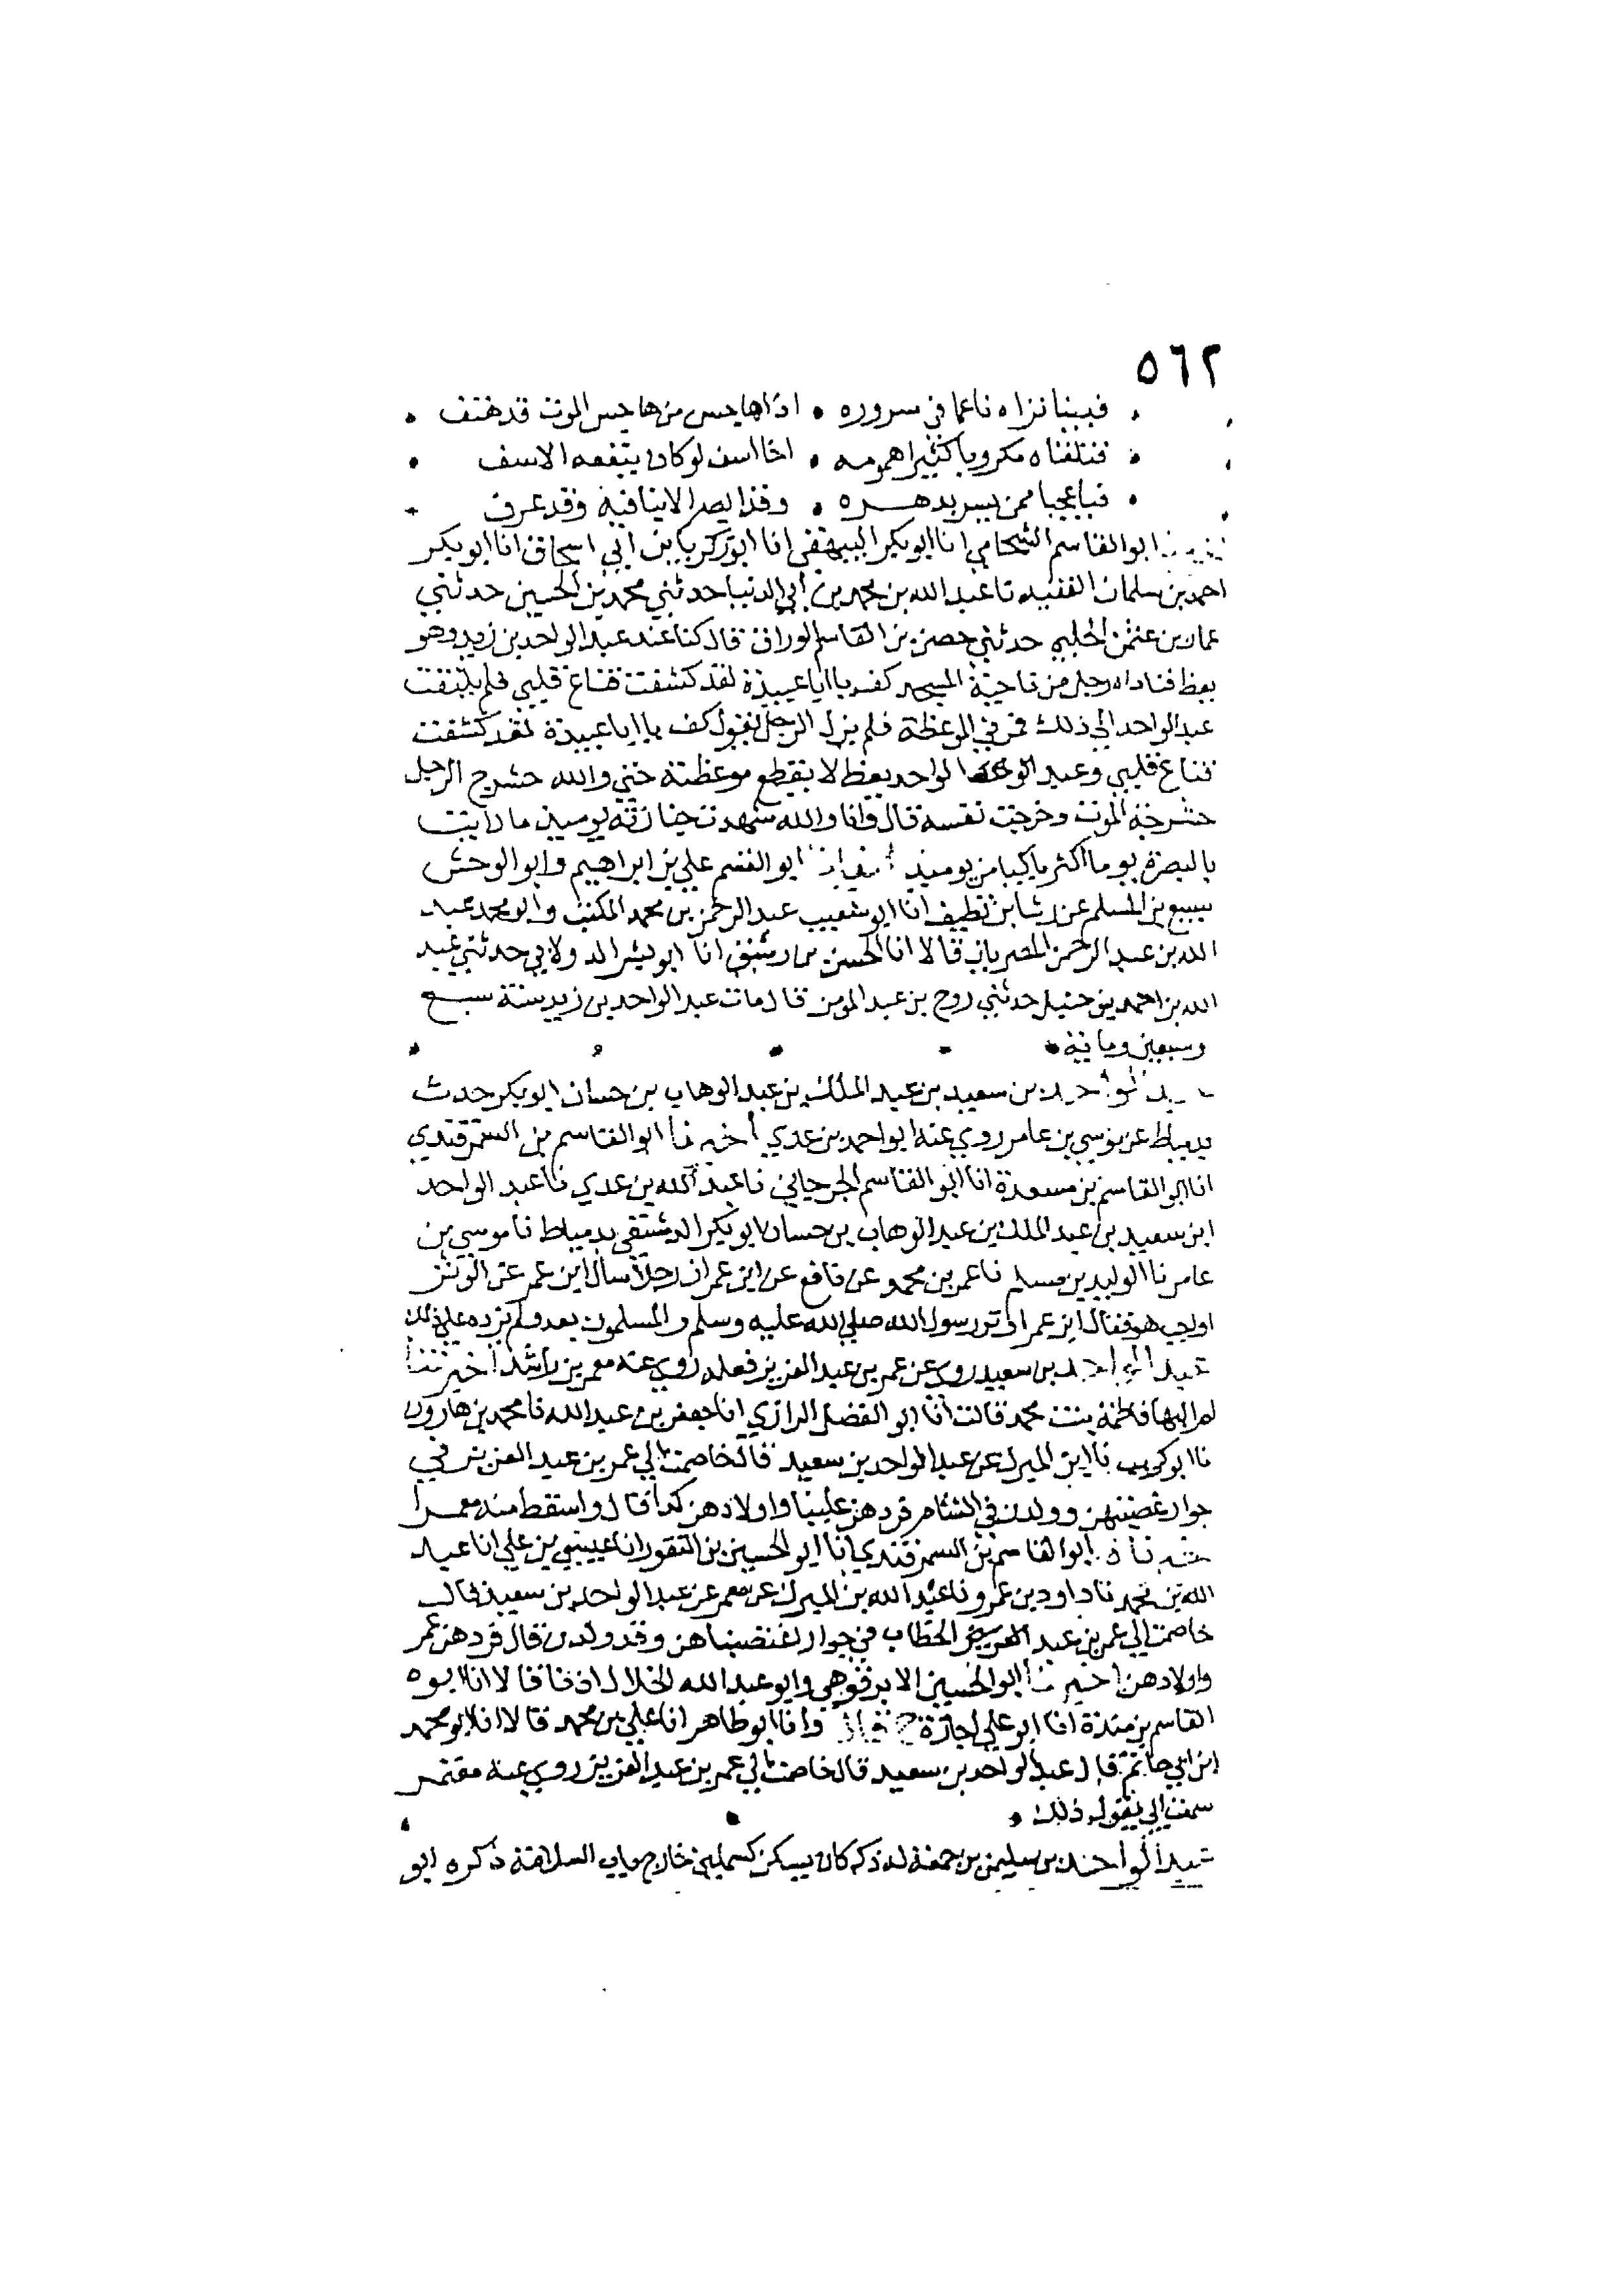 ٥٦٢
فبينا نراه ناعما في سروره • اذا هاجس من هاجس الموت قد هتف
فتلقاه مكروبا كثيرا همومه • اخا اسف لو كان ينفعه الاسف
فيا عجبا ممن يسر بدهره • وقد ابصر الدنيا فيه وقد عرف
ابو القاسم الشحامي انا ابو بكر البيهقي انا ابو زكريا بن ابي اسحاق انا ابو بكر
احمد بن سلمان الفقيه نا عبد الله بن محمد بن ابي الدنيا حدثني محمد بن الحسين حدثني
عمار بن عثمن الحلبي حدثني حصن بن القاسم الوراق قال كنا عند عبد الواحد بن زيد وهو
يعظ فناداه رجل من ناحية المسجد كف يا ابا عبيدة لقد كشفت قناع قلبي فلم يلتفت
عبد الواحد الى ذلك فمر في الموعظة فلم يزل الرجل يقول كف يا ابا عبيدة لقد كشفت
قناع قلبي وعبد الواحد يعظ لا يقطع موعظته حتي والله حشرج الرجل
حشرجة الموت وخرجت نفسه قال وانا والله شهدت جنازته يوميذ ما رايت
بالبصرة يوما اكثر باكيا من يوميذ ابو القسم علي بن ابراهيم وابو الوحش
سبيع بن المسلم عن رشا بن نظيف انا ابو شعيب عبد الرحمن بن محمد المكتب وابو محمد عبد
الله بن عبد الرحمن المصريان قالا انا الحسن بن رشيق انا ابو بشر الدولابي حدثني عبد
الله بن احمد بن حنبل حدثني روح بن عبد المومن قال مات عبد الواحد بن زيد سنة سبع
وسبعين وماية
عبد الواحد بن سعيد بن عبد الملك بن عبد الوهاب بن حسان ابو بكر حدث
بدمياط عن موسي بن عامر روي عنه ابو احمد بن عدي اخبرنا ابو القاسم بن السمرقندي
انا ابو القاسم بن مسعدة انا ابو القاسم الجرجاني نا عبد الله بن عدي نا عبد الواحد
ابن سعيد بن عبد الملك بن عبد الوهاب بن حسان ابو بكر الدمشقي بدمياط نا موسي بن
عامر نا الوليد بن مسلم نا عمر بن محمد عن نافع عن ابن عمر ان رجلا سال ابن عمر عن الوتر
اواجب هو فقال ابن عمر اوتر رسول الله صلي الله عليه وسلم والمسلمون بعد ولم يزده علي ذلك
عبد الواحد بن سعيد روي عن عمر بن عبد العزيز فعله روي عنه معمر بن راشد اخبرتنا
ام البها فاطمة بنت محمد قالت انا ابو الفضل الرازي انا جعفر بن عبد الله نا محمد بن هارون
نا ابو كريب نا ابن المبرك عن عبد الواحد بن سعيد قال خاصمت الي عمر بن عبد العزيز في
جوار غصبتهن وولدن في الشام فردهن علينا واولادهن كذا قال واسقط منه معمرا
ابو القاسم بن السمرقندي انا ابو الحسين بن النقور انا عيسي بن علي انا عبد
الله بن محمد نا داود بن عمرو نا عبد الله بن المبرك عن معمر عن عبد الواحد بن سعيد قال
خاصمت الي عمر بن عبد العزيز الخطاب في جوار اغتصبناهن وقد ولدن قال فردهن عمر
واولادهن اخبرنا ابو الحسين الابرقوهي وابو عبد الله الخلال اذنا قالا انا ابو
القاسم بن مندة انا ابو علي اجازة ح قال وانا ابو طاهر انا علي بن محمد قالا انا ابو محمد
ابن ابي حاتم قال عبد الواحد بن سعيد قال خاصمت الي عمر بن عبد العزيز روي عنه معتمر
سمعت ابي يقول ذلك
عبد الواحد بن سليمن بن جمعة له ذكر كان يسكن خارج باب السلامة ذكره ابو